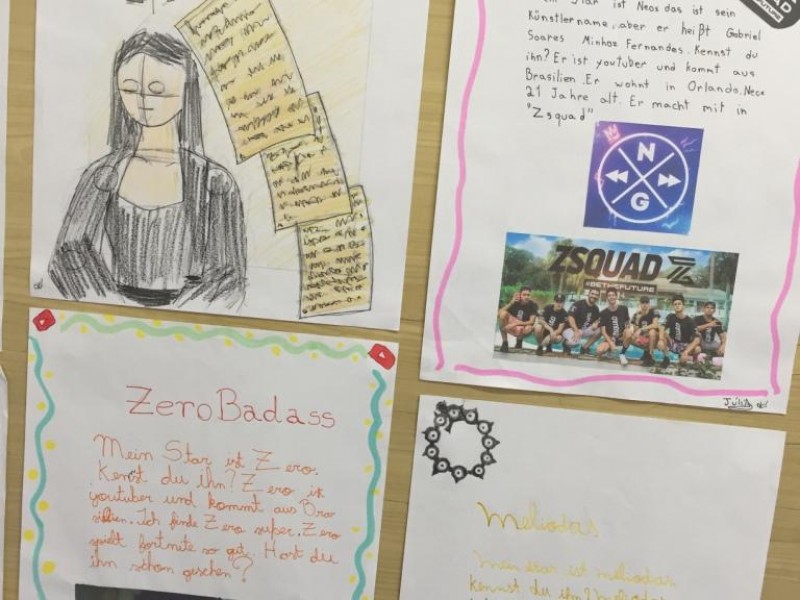 Star ist Neox das ist sein
Künstlername, aber er heißt Gabriel
Soares Minhoz Fernandes. Kennst du
ihn? Er ist youtuber und kommt aus
Brasilien. Er wohnt in Orlando. Neox
21 Jahre alt. Er macht mit in
"Zsquad"
N
G
ZSQUAD
#BETHEFUTURE
Júlia
Zero Badass
Mein Star ist Zero.
Kenst du ihn? Zero is
youtuber und kommt aus Bra
silien. Ich finde Zero super. Zero
spielt fortnite so gut. Host du
ihn schon gesehen?
Meliodas
Mein star ist meliodas
kennst du ihn? meliodas